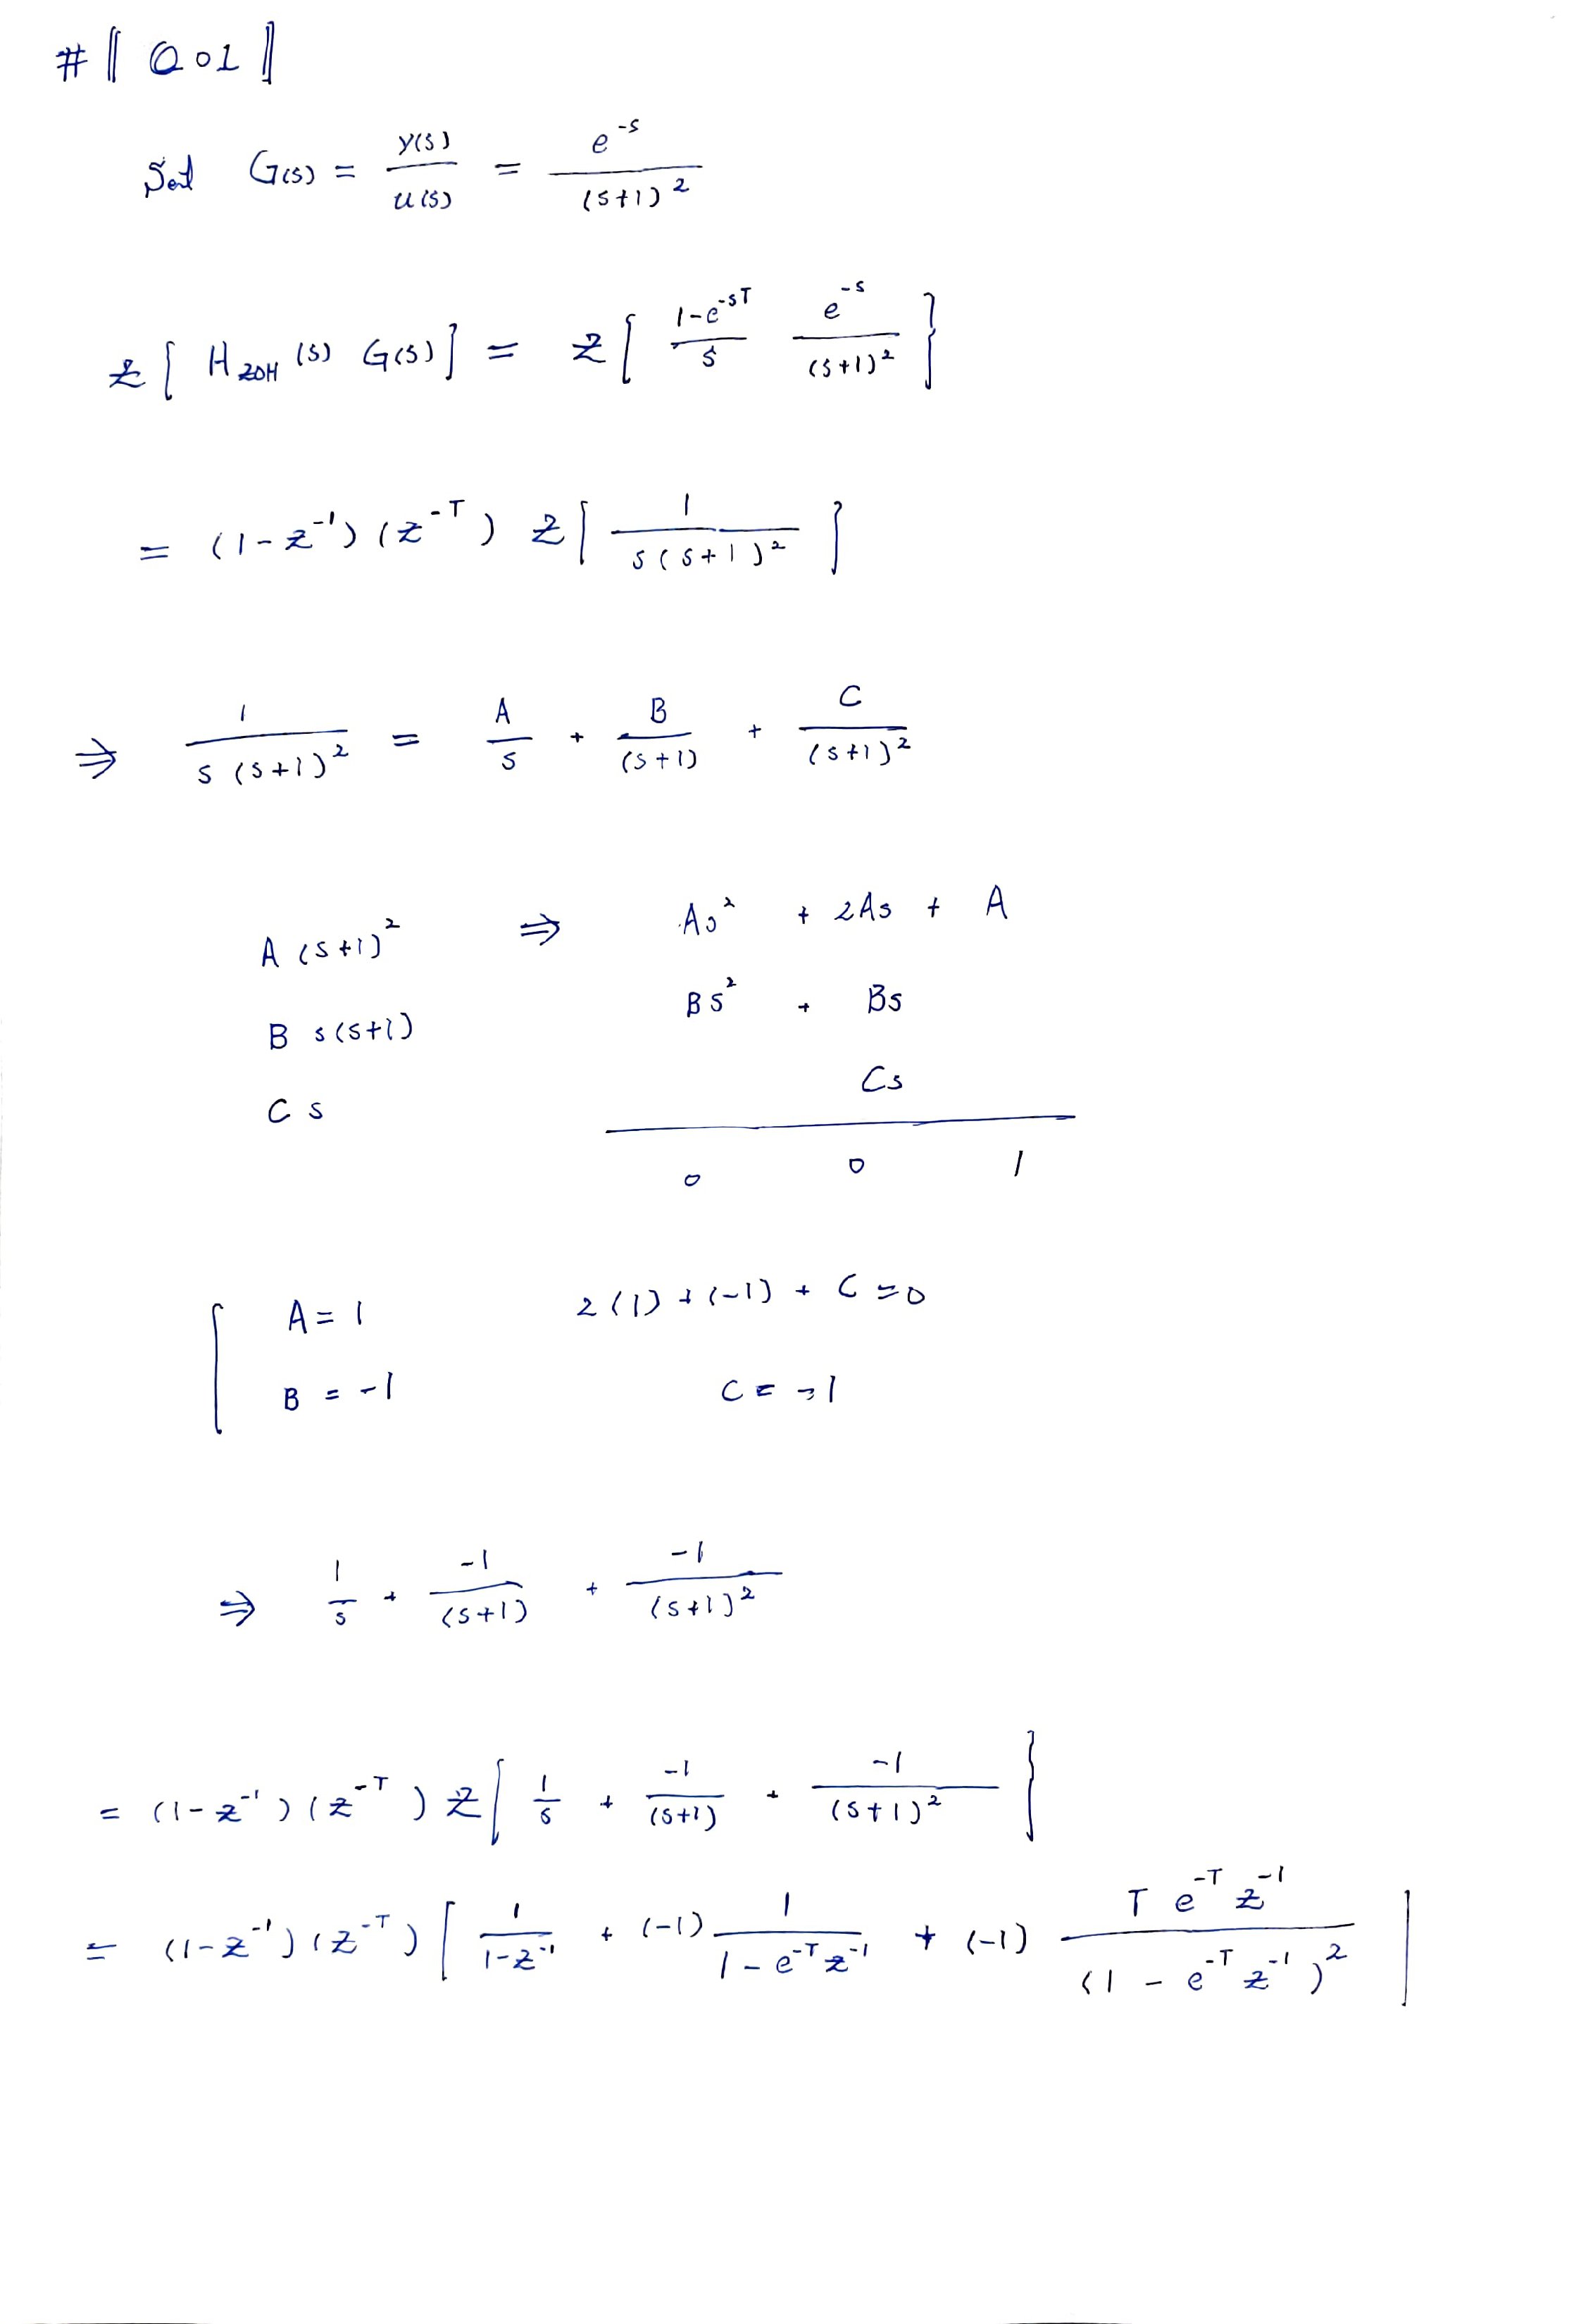 # || Q01 ||
G(s) = Y(s) / U(s) = e^-s / (s+1)^2
Z[ H_ZOH (s) G(s) ] = Z[ 1-e^-sT / s e^-s / (s+1)^2 ]
= (1-z^-1) (z^-T) Z[ 1 / s(s+1)^2 ]
⇒ 1 / s(s+1)^2 = A/s + B/(s+1) + C/(s+1)^2
A (s+1)^2 ⇒ As^2 + 2As + A
B s(s+1) Bs^2 + Bs
C s Cs
0 0 1
A = 1 2(1) + (-1) + C = 0
B = -1 C = -1
⇒ 1/s + -1/(s+1) + -1/(s+1)^2
= (1-z^-1) (z^-T) Z[ 1/s + -1/(s+1) + -1/(s+1)^2 ]
= (1-z^-1) (z^-T) [ 1/(1-z^-1) + (-1) 1/(1-e^-T z^-1) + (-1) T e^-T z^-1 / (1 - e^-T z^-1)^2 ]